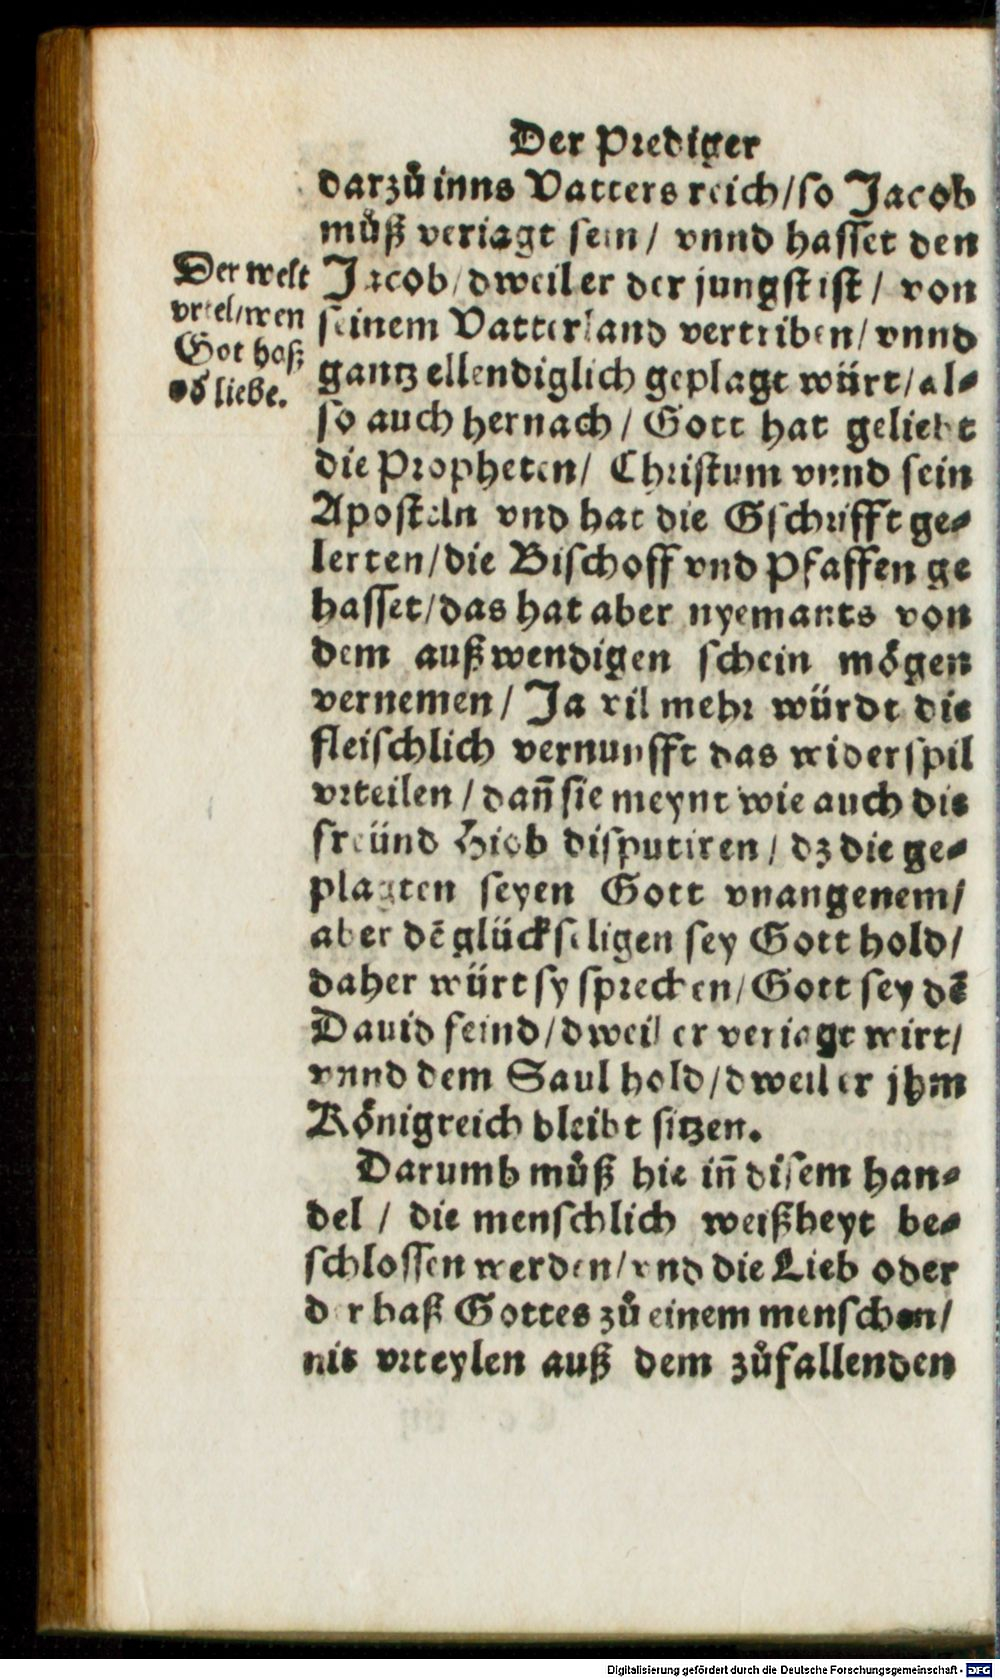 Der Prediger
darzů inns Vatters reich/so Jacob
můß veriagt sein/ vnnd hasset den
Jacob/dweil er der jungst ist/ von
seinem Vatterland vertriben/vnnd
gantz ellendiglich geplagt würt/al-
so auch hernach/ Gott hat geliebt
die Propheten/ Christum vnnd sein
Aposteln vnd hat die Gschrifft ge-
lerten/die Bischoff vnd Pfaffen ge
hasset/das hat aber nyemants von
dem außwendigen schein mögen
vernemen/ Ja vil mehr würdt die
fleischlich vernunfft das widerspil
vrteilen/dañ sie meynt wie auch die
freünd Hiob disputiren/ dz die ge-
plagten seyen Gott vnangenem/
aber dē glückseligen sey Gott hold/
daher würt sy sprechen/Gott sey dē
Dauid feind/dweil er veriagt wirt/
vnnd dem Saul hold/dweil er jhm
Königreich bleibt sitzen.
Darumb můß hie iñ disem han-
del/ die menschlich weißheyt be-
schlossen werden/vnd die Lieb oder
der haß Gottes zů einem menschen/
nit vrteylen auß dem zůfallenden
Der welt
vrtel/wen
Got haß
od liebe.
Digitalisierung gefördert durch die Deutsche Forschungsgemeinschaft - DFG